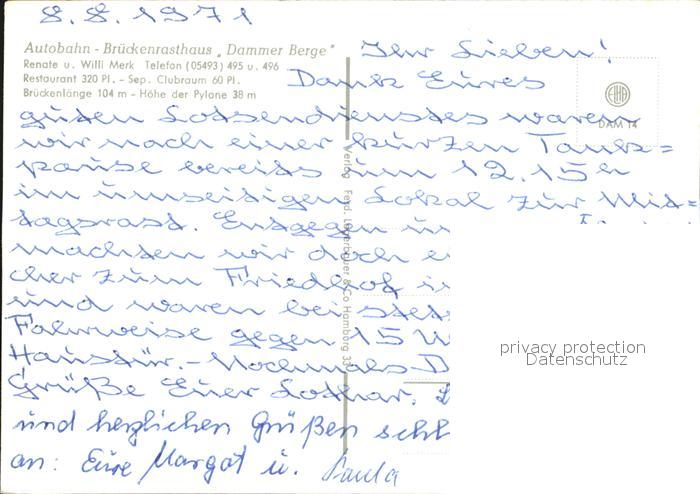 8.8.1971
Autobahn - Brückenrasthaus „Dammer Berge"
Renate u. Willi Merk Telefon (05493) 495 u. 496
Restaurant 320 Pl. - Sep. Clubraum 60 Pl.
Brückenlänge 104 m - Höhe der Pylone 38 m
DAM 14
Ihr Lieben!
Dank Eures
guten Lotsendienstes waren
wir nach einer kurzen Tank=
pause bereits um 12.15 h
im umseitigen Lokal zur Mit=
tagsrast. Entgegen
machten wir doch
cher zum Friedhof
und waren bei
Fahrweise gegen 15
Haustür. - Nochmals
Grüße Euer Lothar.
und herzlichen Grüßen
an: Eure Margot u. Paula
Verlag Ferd. Lagerbauer & Co Hamburg 33
privacy protection
Datenschutz